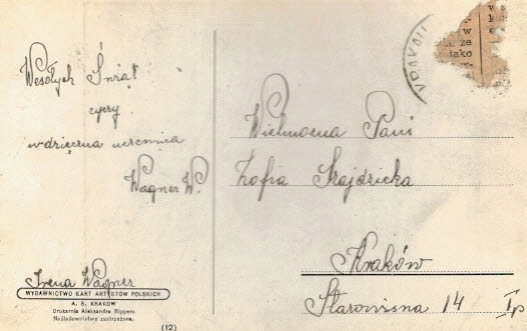 Wesołych Świąt
życzy
wdzięczna uczennica
Wagner W.
Irena Wagner
WYDAWNICTWO KART ARTYSTÓW POLSKICH
A. S. KRAKÓW
Drukarnia Aleksandra Rippera
Naśladownictwo zastrzeżone.
(12)
Wielmożna Pani
Zofia
Kraków
Starowiślna 14 Ip
KRAKÓW
w
ze
jako